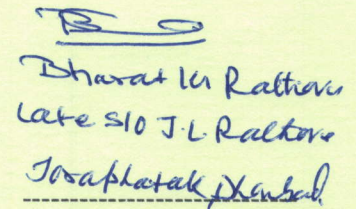 Bharat Kr Rathore
Late S/O J.L. Rathore
Joraphatak, Dhanbad